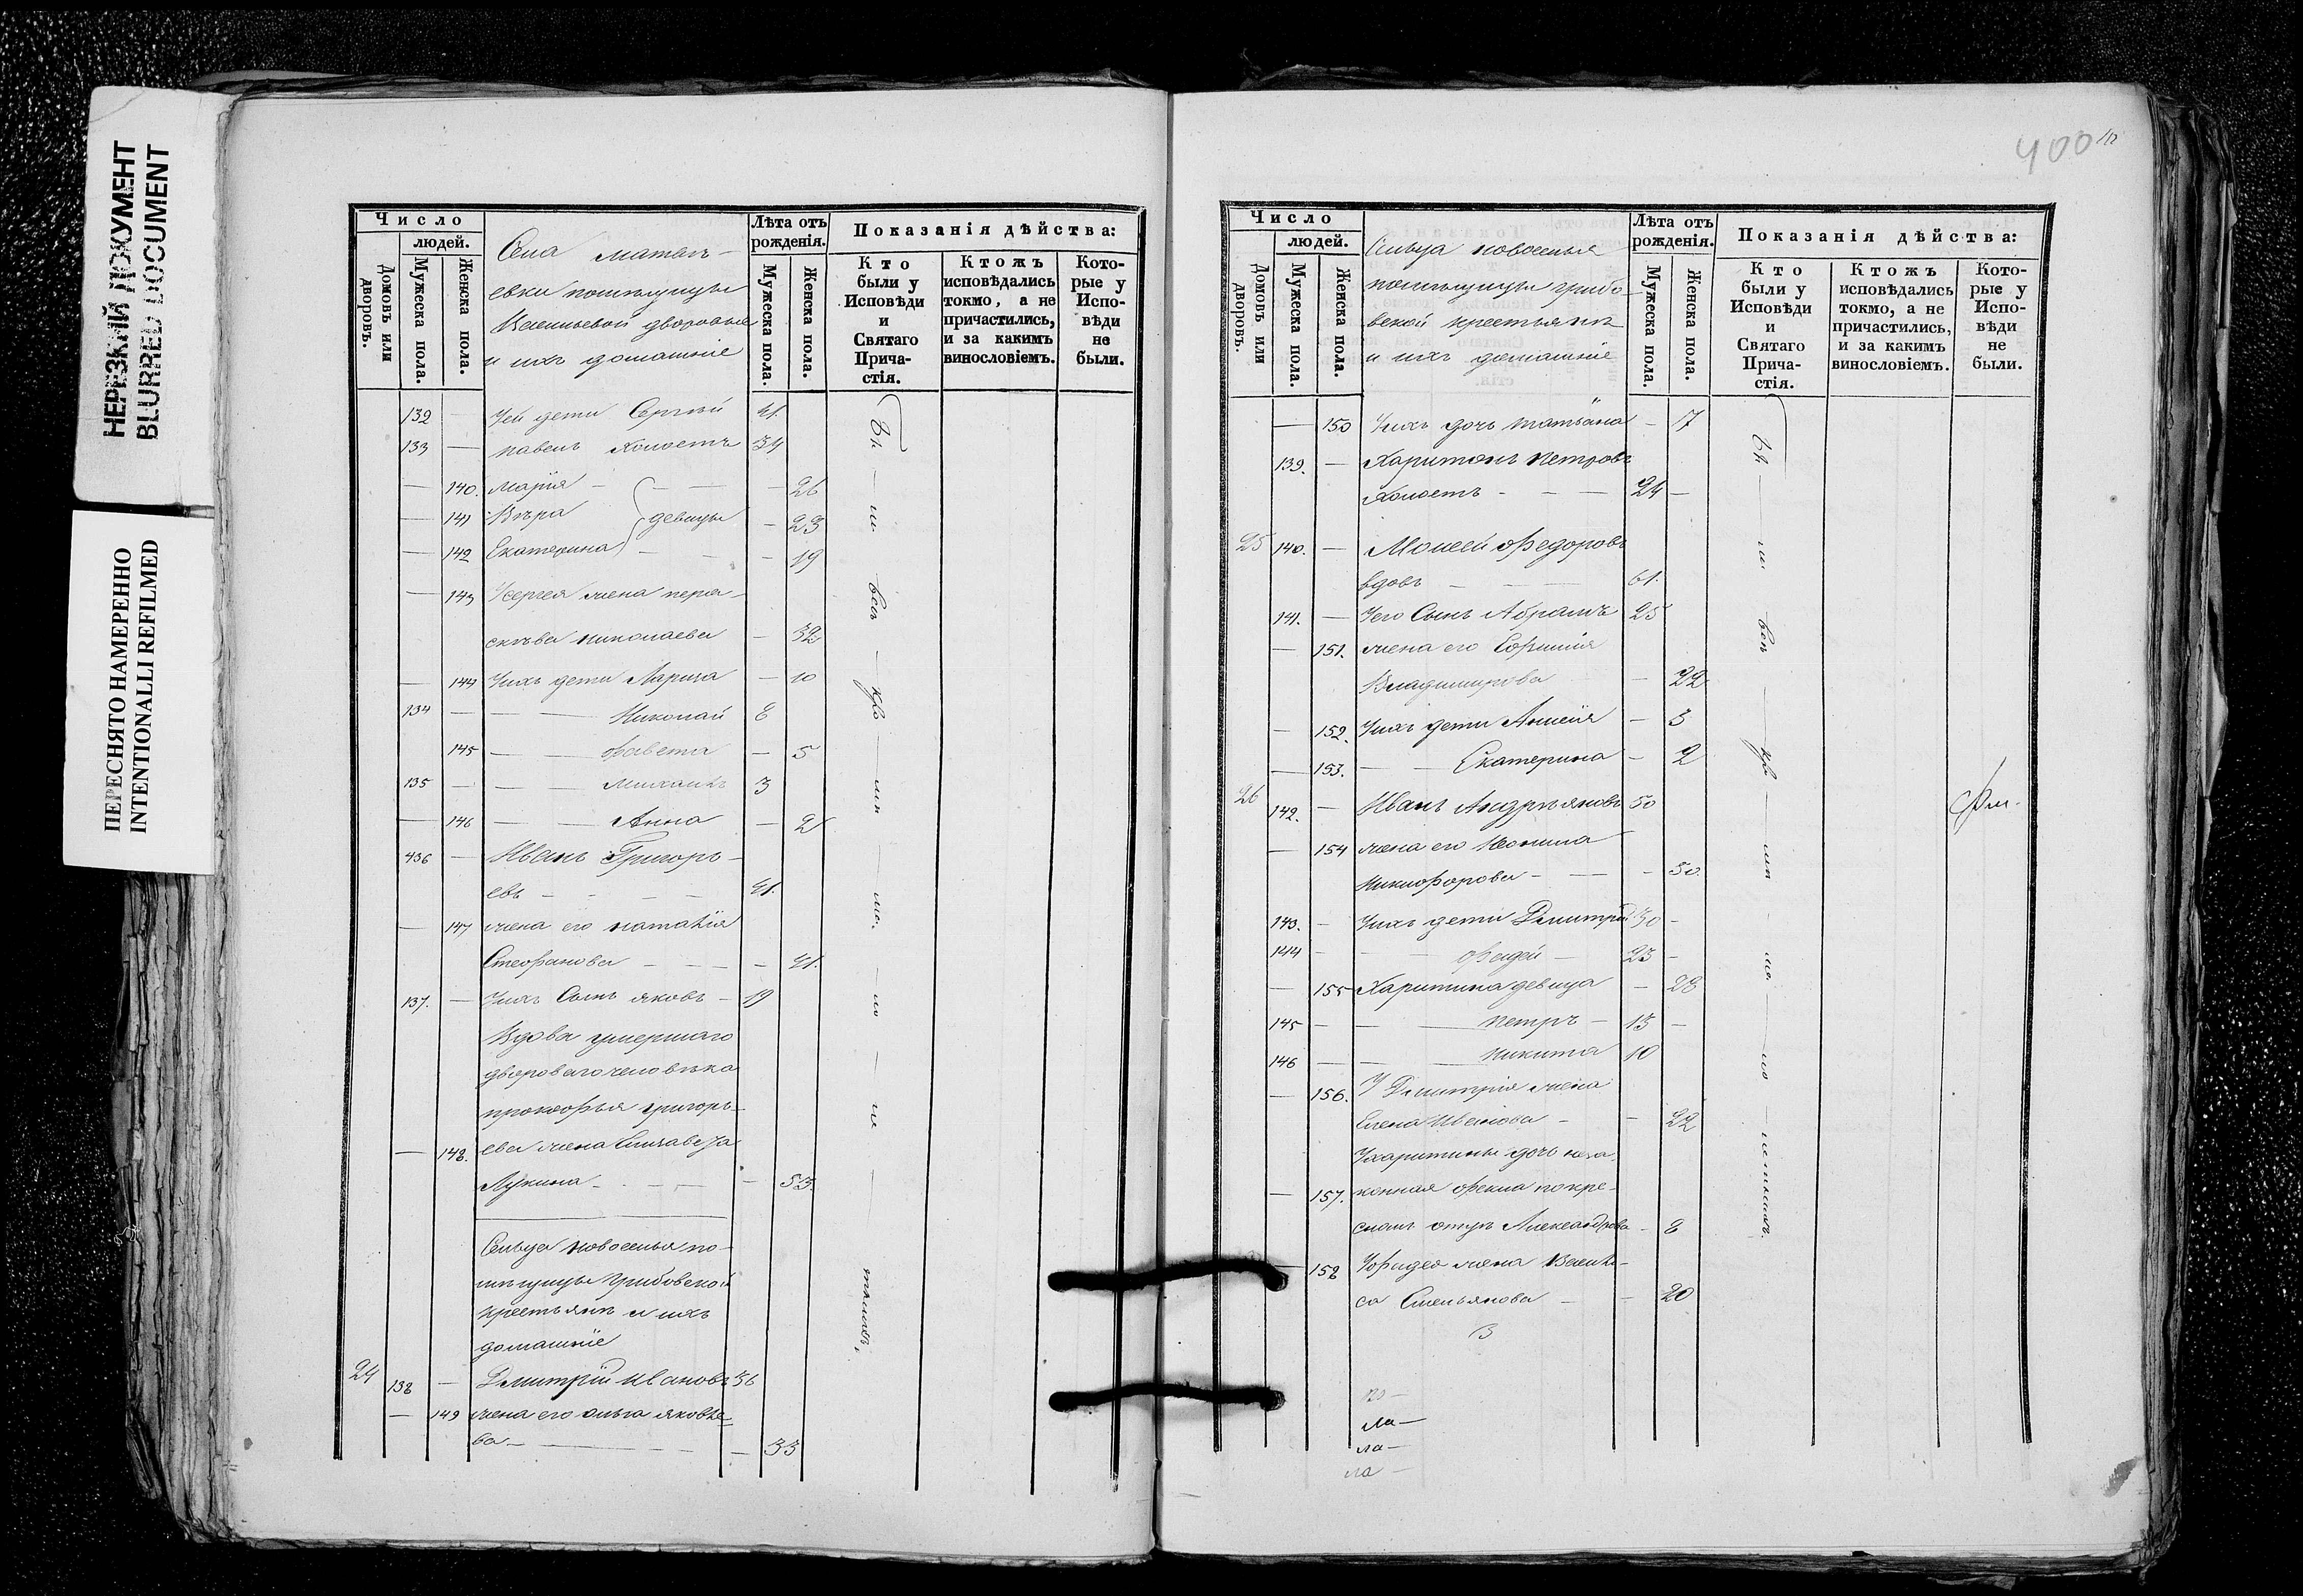 НЕРЕЗКИЙ ДОКУМЕНТ
BLURRED DOCUMENT
ПЕРЕСНЯТО НАМЕРЕННО
INTENTIONALLI REFILMED
Число
людей.
Домовъ или дворовъ.
Мужеска пола.
Женска пола.
Села Матвѣ-
евки помѣщицы
Васильевой дворовые
и ихъ домашніе
Лѣта отъ рожденія.
Мужеска пола.
Женска пола.
Показанія дѣйства:
Кто были у Исповѣди и Святаго Прича-стія.
Ктожъ исповѣдались токмо, а не причастились, и за какимъ винословіемъ.
Кото-рые у Испо-вѣди не были.
132 — Уей дети Сергѣй 41.
133 — павелъ Холостъ 34
— 140. марія — 26
— 141 Вѣра девицы — 23
— 142 Екатерина — 19
— 143 Усергея жена пера-
скѣва николаева — 32
— 144 Уихъ дети Лариса — 10
134 — Николай 8
145 — — 5
135 — михаилъ 3
— 146 — Анна — 2
136 — Иванъ Григорь-
евъ — 41.
— 147 жена его наталія
Стефанова — 41.
137. — Уихъ Сынъ яковъ — 19
Вдова умершаго
двороваго человѣка
прокофья григорь-
— 148. ева жена Елизавета
Лукина — 53.
Сельца новоселья по-
мѣщицы Грибовской
крестьянѣ и ихъ
домашніе
24 138 — Дмитрій Ивановъ 36
— 149 жена его ольга яковле-
ва — 33
400
Число
людей.
Домовъ или дворовъ.
Мужеска пола.
Женска пола.
Сельца новоселья
помѣщицы грибо-
вской крестьянѣ
и ихъ домашніе
Лѣта отъ рожденія.
Мужеска пола.
Женска пола.
Показанія дѣйства:
Кто были у Исповѣди и Святаго Прича-стія.
Ктожъ исповѣдались токмо, а не причастились, и за какимъ винословіемъ.
Кото-рые у Испо-вѣди не были.
— 150 Уихъ дочь татьяна — 7
139. — Харитонъ петровъ
Холостъ — 24 —
25 140. — Моисей Федоровъ
вдовъ — 61.
141. — Уего Сынъ Абрамъ 25
— 151. жена его Евфимія
Владимирова — 22
— 152. Уихъ дети — 3
— 153. — Екатерина — 2
26 142. — Иванъ Андрѣяновъ 50
— 154 жена его
Никифорова — 50.
143. — Уихъ дети Димитрій 30 —
144 — Фадей — 23 —
— 155 Харитина девица — 28
145 — петръ — 13 —
146 — никита 10
— 156. У Димитрія жена
Елена Иванова — 22
Ухаритины дочь неза-
— 157. конная фекла покре-
стномъ отцѣ Александрова — 8
— 158 Уфадея жена Васили-
са Емельянова — 20